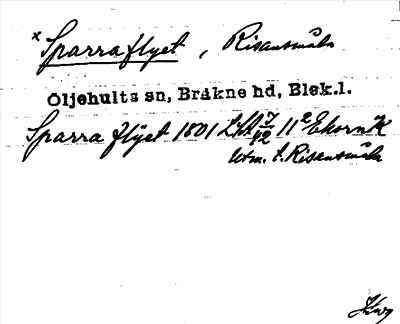 × Sparraflyet, Risansmåla
Öljehults sn, Bräkne hd, Blek.l.
Sparra flyet 1801 LSA 7/42 11² Ekorn K
utm. t. Risansmåla